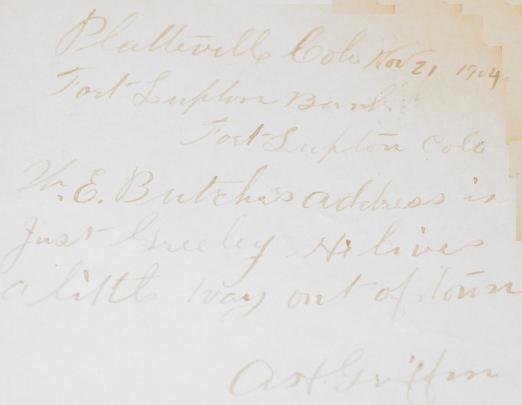 Platteville Colo Nov 21 1904
Fort Lupton Bank.
Fort Lupton Colo
W. E. Butcher's address is
Just Greeley He lives
a little way out of town
A H Griffin